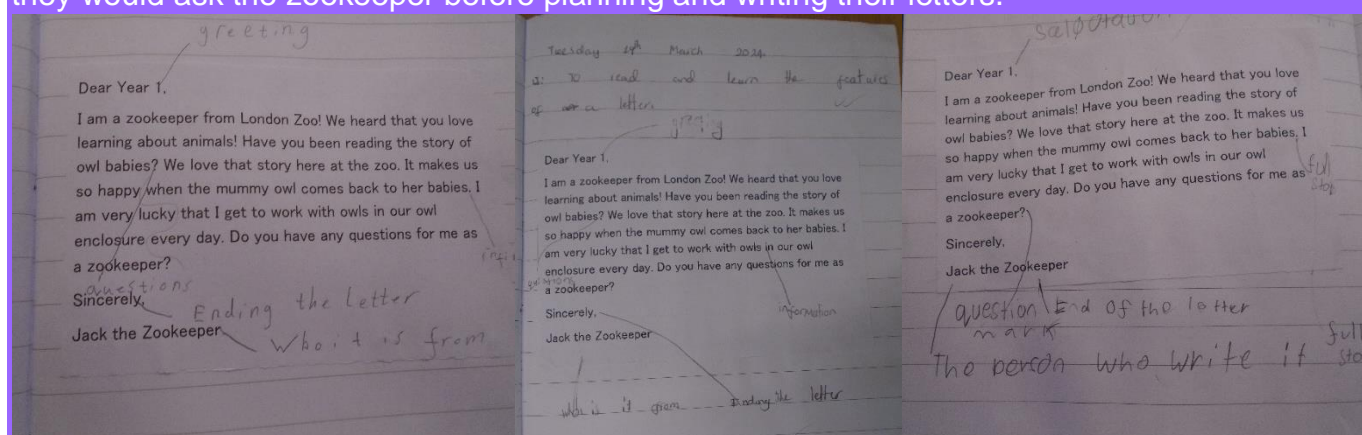 they would ask the zookeeper before planning and writing their letters.
greeting
Dear Year 1,
I am a zookeeper from London Zoo! We heard that you love
learning about animals! Have you been reading the story of
owl babies? We love that story here at the zoo. It makes us
so happy when the mummy owl comes back to her babies. I
am very lucky that I get to work with owls in our owl
enclosure every day. Do you have any questions for me as
a zookeeper?
questions
Sincerely,
Ending the letter
Jack the Zookeeper
Who it is from
Tuesday March 2024
to read and learn the features
of a letter
Dear Year 1,
I am a zookeeper from London Zoo! We heard that you love
learning about animals! Have you been reading the story of
owl babies? We love that story here at the zoo. It makes us
so happy when the mummy owl comes back to her babies. I
am very lucky that I get to work with owls in our owl
enclosure every day. Do you have any questions for me as
a zookeeper?
Sincerely,
information
Jack the Zookeeper
it Ending the letter
Dear Year 1,
I am a zookeeper from London Zoo! We heard that you love
learning about animals! Have you been reading the story of
owl babies? We love that story here at the zoo. It makes us
so happy when the mummy owl comes back to her babies. I
am very lucky that I get to work with owls in our owl
full
enclosure every day. Do you have any questions for me as
stop
a zookeeper?
Sincerely,
Jack the Zookeeper
question End of the letter
mark
full
The person who write it sto